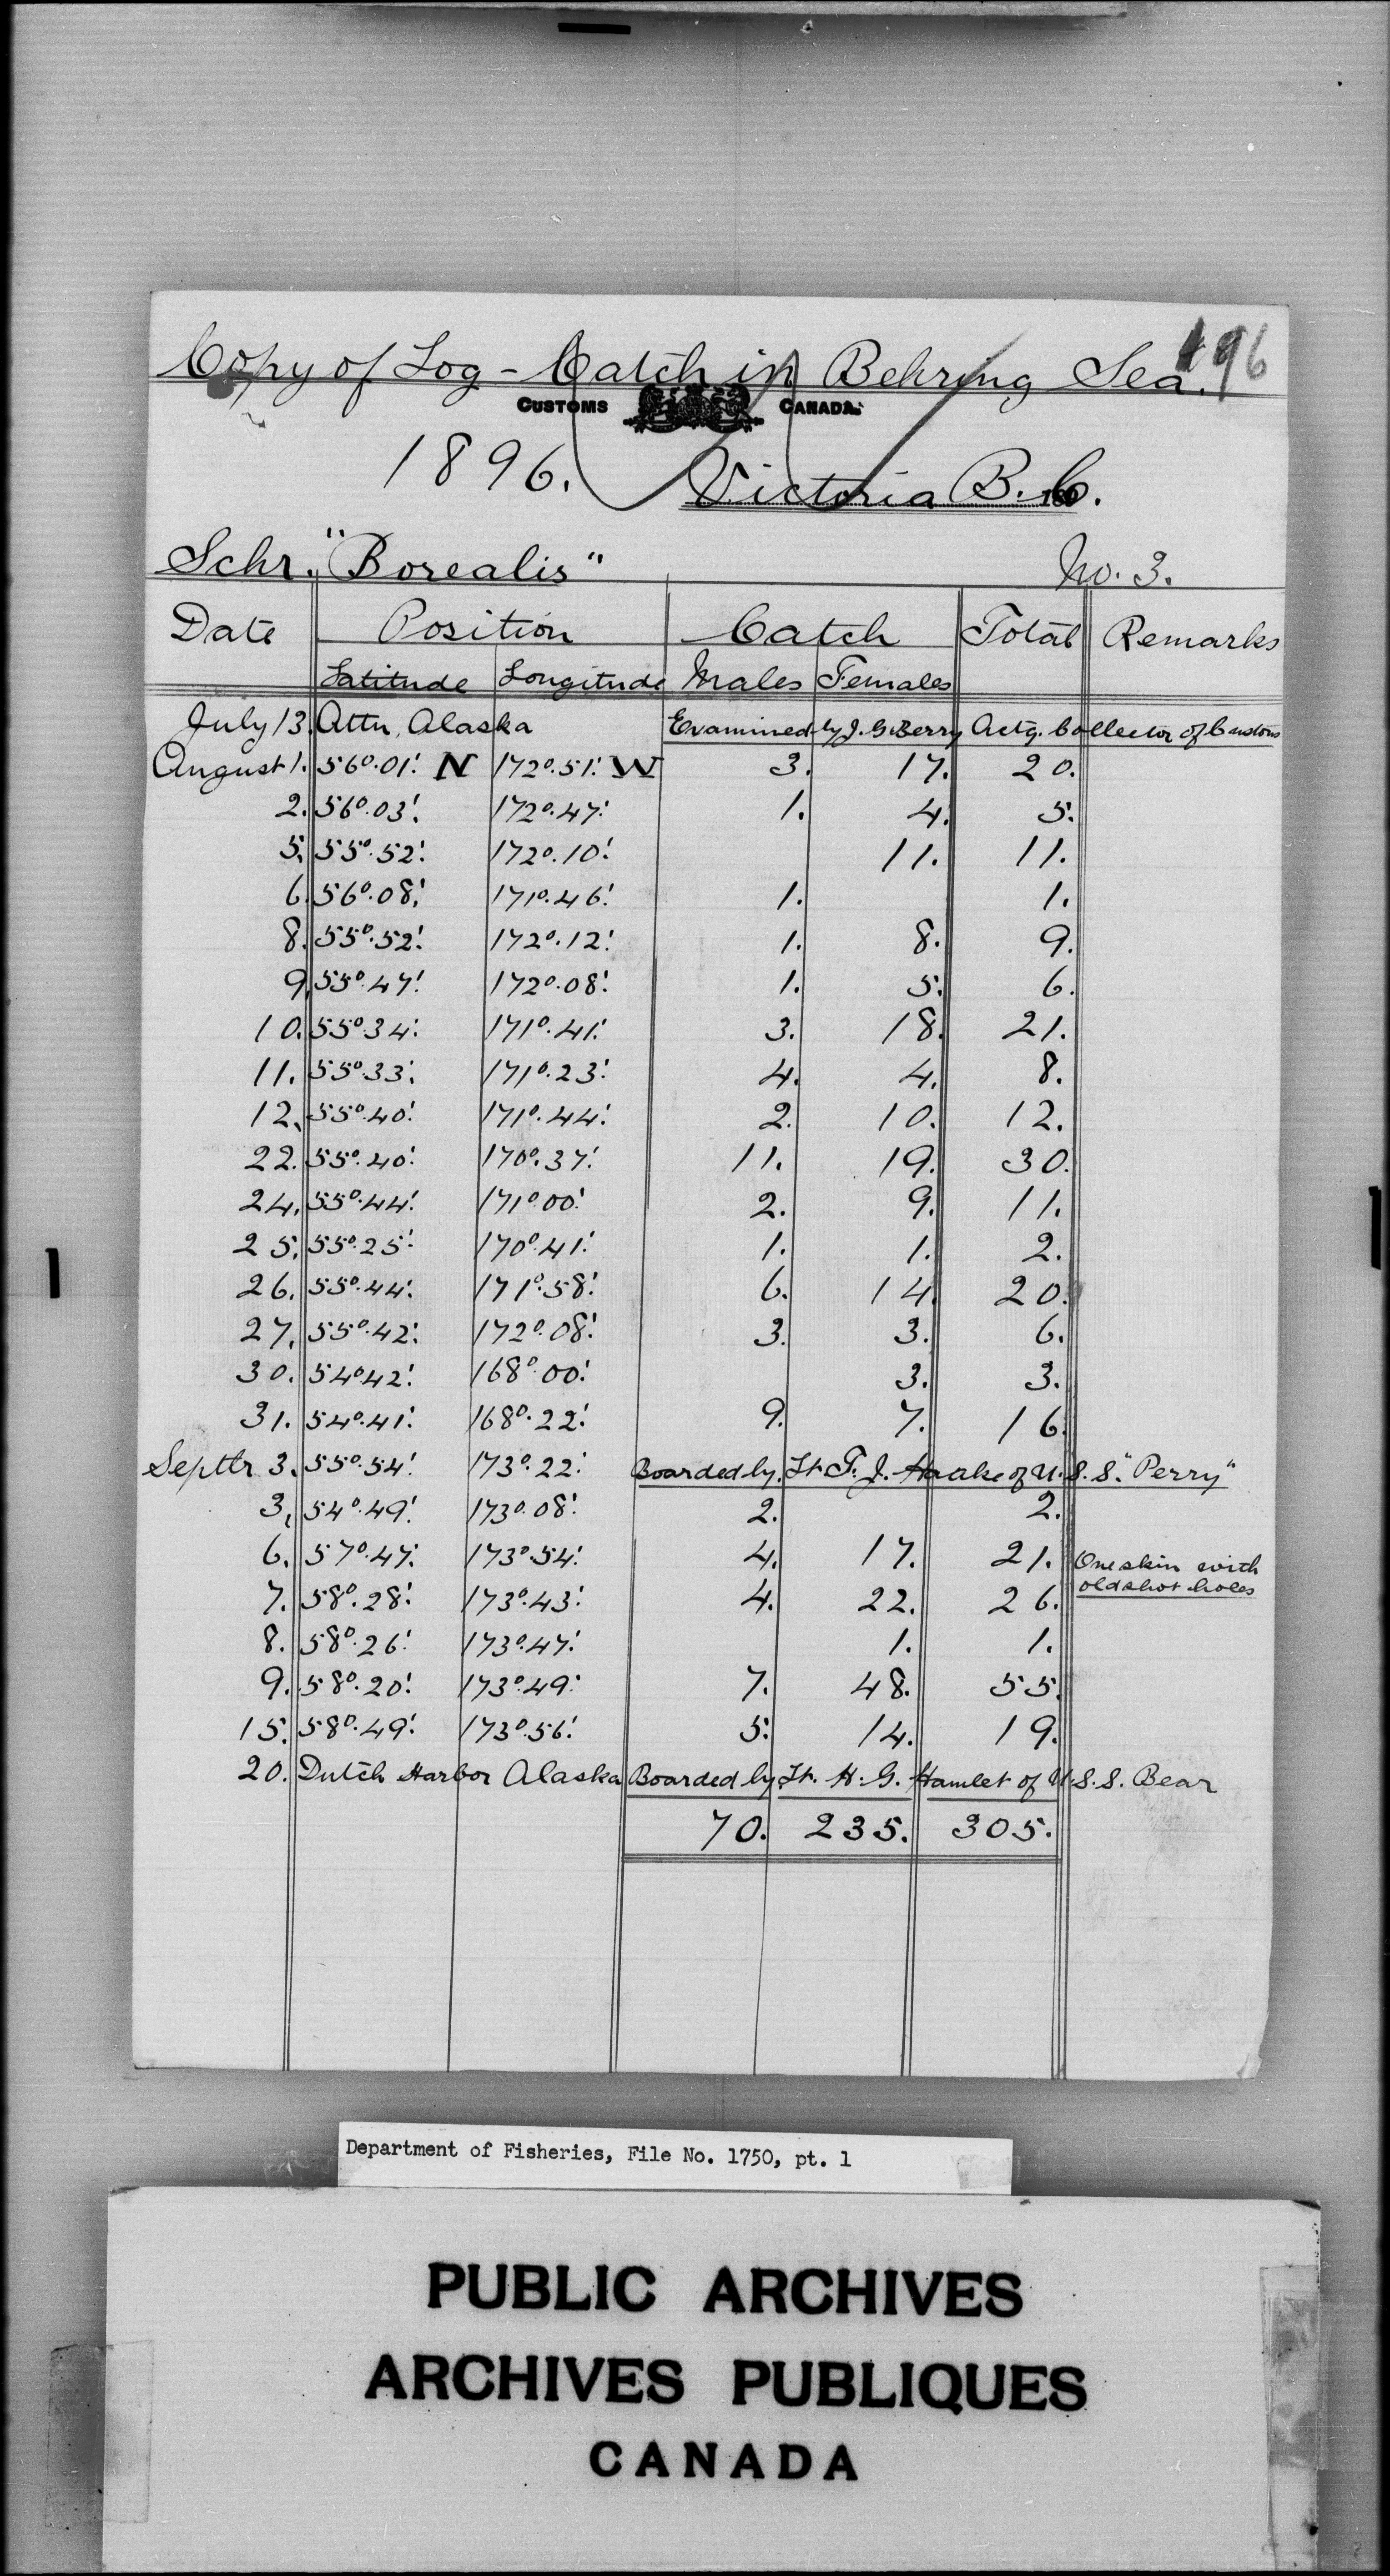 196
Copy of Log - Catch in Behring Sea.
CUSTOMS CANADA.
1896. Victoria B.C.
Schr. "Borealis" No. 3.
Date Position Catch Total Remarks
Latitude Longitude Males Females
July 13. Attu, Alaska Examined by J. G. Berry Actg. Collector of Customs
August 1. 56°.01'. N 172°.51'. W 3. 17. 20.
2. 56°.03'. 172°.47'. 1. 4. 5.
5. 55°.52'. 172°.10'. 11. 11.
6. 56°.08'. 171°.46'. 1. 1.
8. 55°.52'. 172°.12'. 1. 8. 9.
9. 55°.47'. 172°.08'. 1. 5. 6.
10. 55°.34'. 171°.41'. 3. 18. 21.
11. 55°.33'. 171°.23'. 4. 4. 8.
12. 55°.40'. 171°.44'. 2. 10. 12.
22. 55°.40'. 170°.37'. 11. 19. 30.
24. 55°.44'. 171°.00'. 2. 9. 11.
25. 55°.25'. 170°.41'. 1. 1. 2.
26. 55°.44'. 171°.58'. 6. 14. 20.
27. 55°.42'. 172°.08'. 3. 3. 6.
30. 54°42'. 168°.00'. 3. 3.
31. 54°.41'. 168°.22'. 9. 7. 16.
Septbr 3. 55°.54'. 173°.22'. Boarded by Lt. F. J. Haake of U.S.S. "Perry"
3. 54°.49'. 173°.08'. 2. 2.
6. 57°.47'. 173°.54'. 4. 17. 21. One skin with
7. 58°.28'. 173°.43'. 4. 22. 26. old shot holes
8. 58°.26'. 173°.47'. 1. 1.
9. 58°.20'. 173°.49'. 7. 48. 55.
15. 58°.49'. 173°.56'. 5. 14. 19.
20. Dutch Harbor Alaska Boarded by Lt. H. G. Hamlet of U.S.S. Bear
70. 235. 305.
Department of Fisheries, File No. 1750, pt. 1
PUBLIC ARCHIVES
ARCHIVES PUBLIQUES
CANADA